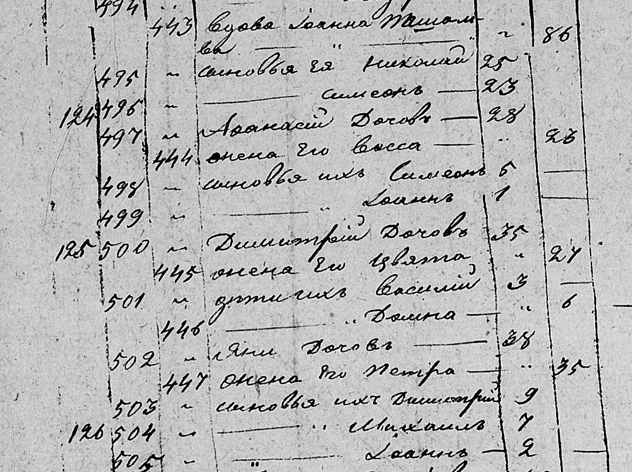 494 "
443 Вдова Іоанна
ва — " — " 86
495 " сыновья ея Николай 25
124 496 " — Симеонъ — 23
497 " Афанасій Дочовъ — 28
444 жена его Васса — " 23
498 " сыновья ихъ Симеонъ 5 —
499 " — " Іоаннъ 1 —
125 500 " Димитрій Дочовъ 35
445 жена его Цвята " 27
501 " дѣти ихъ Василій 3 —
446 — " Домна — " 6
502 " Яни Дочовъ — 38
447 жена его Петра — " 35
503 " сыновья ихъ Димитрій 9
126 504 " — " Михаилъ 7
505 " — Іоаннъ — 2 —